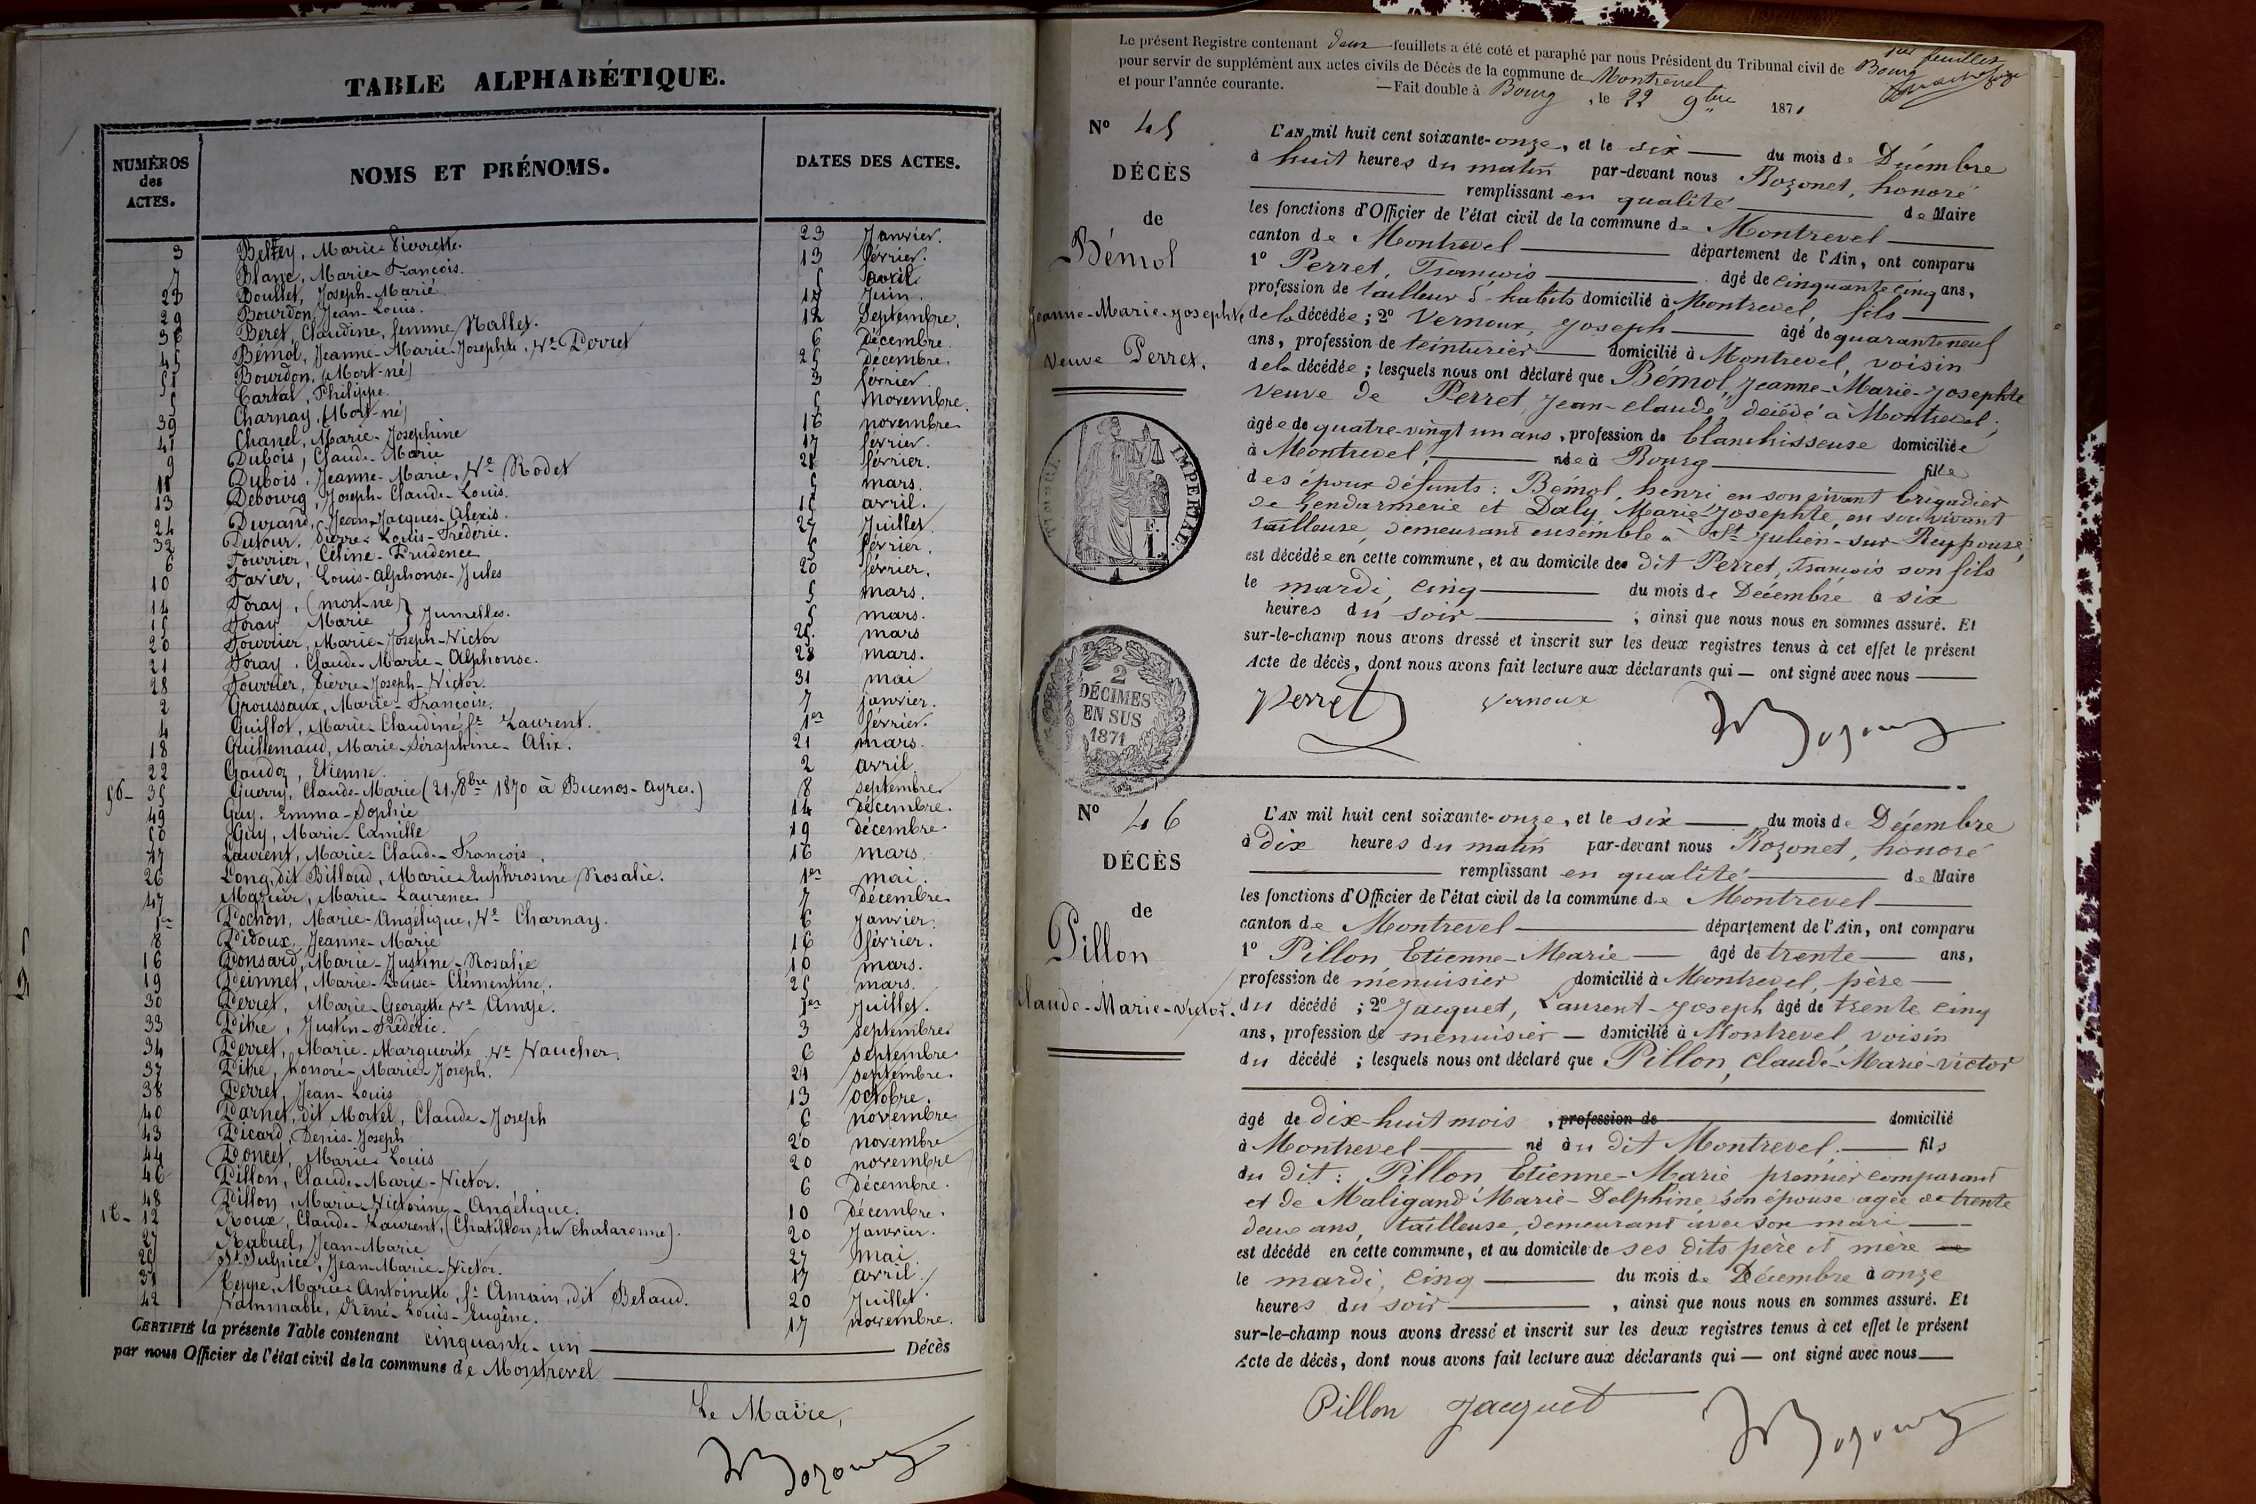 TABLE ALPHABÉTIQUE.
NUMÉROS des ACTES. NOMS ET PRÉNOMS. DATES DES ACTES.
3 Bettey, Marie-Pierrette. 23 Janvier.
7 Blanc, Marie-François. 13 février.
23 Boullet, Joseph-Marie 5 avril
29 Bourdon, Jean-Louis. 17 Juin.
36 Beret, Claudine, femme Nallet. 12 Septembre.
45 Bémol, Jeanne-Marie-Josephte, Ve Perret 6 décembre.
51 Bourdon, (Mort-né) 25 décembre.
5 Cartal, Philippe. 3 février.
39 Charnay, (Mort-né) 5 novembre.
41 Chanel, Marie-Josephine 16 novembre
9 Dubois, Claude-Marie 17 février.
11 Dubois, Jeanne-Marie, Ve Rodet 21 février.
13 Debourg, Joseph-Claude-Louis. 5 mars.
24 Durand, Jean-Jacques-Alexis. 15 avril.
32 Dufour, Pierre-Louis-Frédéric. 27 Juillet.
6 Fourrier, Céline-Prudence 5 février.
10 Favier, Louis-Alphonse-Jules 20 février.
14 Foray, (mort-né) 5 mars.
15 Foray Marie } Jumelles. 5 mars.
20 Fourrier, Marie-Joseph-Victor 25 mars
21 Foray, Claude-Marie-Alphonse. 28 mars.
28 Fourrier, Pierre-Joseph-Victor. 31 mai
2 Groussaux, Marie-Françoise. 7 janvier.
4 Guillot, Marie-Claudine fe Laurent. 1er février.
18 Guillemaud, Marie-Séraphine-Alix. 21 mars.
22 Gaudoz, Etienne. 2 avril
56- 35 Guerry, Claude-Marie (21 8bre 1870 à Buenos-Ayres.) 8 septembre
49 Guy, Emma-Sophie 14 Décembre.
50 Guy, Marie-Camille 19 décembre
17 Laurent, Marie-Claude-François. 16 mars.
26 Long, dit Billoud, Marie-Euphrosine Rosalie. 1er mai.
47 Mazuir, Marie-Laurence 7 Décembre
1er Pochon, Marie-Angélique, Ve Charnay. 6 Janvier.
8 Pidoux, Jeanne-Marie 16 février.
16 Ponsard, Marie-Justine-Rosalie 10 mars.
19 Peinnet, Marie-Louise-Clémentine. 25 mars.
30 Perret, Marie-Georgette Ve Amye. 1er Juillet.
33 Pitre, Justin-Frédéric. 3 septembre
34 Perret, Marie-Marguerite Ve Vaucher. 6 septembre
37 Pitre, honoré-Marie-Joseph. 21 septembre.
38 Perret, Jean-Louis 13 octobre.
40 Parnet, dit Mortel, Claude-Joseph 6 novembre
43 Picard, Denis-Joseph 20 novembre
44 Poncet, Marie-Louis 20 novembre
46 Pillon, Claude-Marie-Victor. 6 Décembre.
48 Pillon, Marie-Victorine-Angélique. 10 Décembre.
16- 12 Roux, Claude-Laurent, (Chatillon sur Chalaronne). 20 Janvier.
27 Rabuel, Jean-Marie 27 mai
25 St Sulpice, Jean-Marie-Victor. 17 avril.
31 Teppe, Marie-Antoinette, fe Amain, dit Betaud. 20 Juillet.
42 Vatinmable, René-Louis-Eugène. 17 novembre.
CERTIFIÉ la présente Table contenant cinquante-un Décès
par nous Officier de l'état civil de la commune de Montrevel
Le Maire,
Le présent Registre contenant deux feuillets a été coté et paraphé par nous Président du Tribunal civil de Bourg
pour servir de supplément aux actes civils de Décès de la commune de Montrevel
et pour l'année courante. — Fait double à Bourg, le 22 9bre 1871
1er feuillet
N° 45
DÉCÈS
de
Bémol
Jeanne-Marie-Josephte,
veuve Perret.
L'AN mil huit cent soixante-onze, et le six du mois de Décembre
à huit heures du matin par-devant nous Rozonet, honoré
remplissant en qualité de Maire
les fonctions d'Officier de l'état civil de la commune de Montrevel
canton de Montrevel département de l'Ain, ont comparu
1° Perret, François âgé de cinquante cinq ans,
profession de tailleur d'habits domicilié à Montrevel, fils
de la décédée ; 2° Vernoux, Joseph âgé de quarante neuf
ans, profession de teinturier domicilié à Montrevel, voisin
de la décédée ; lesquels nous ont déclaré que Bémol, Jeanne-Marie-Josephte
veuve de Perret, Jean-claude, décédé à Montrevel ;
âgée de quatre-vingt un ans, profession de blanchisseuse domiciliée
à Montrevel, née à Bourg fille
des époux défunts : Bémol, henri en son vivant brigadier
de Gendarmerie et Daly Marie-Josephte, en son vivant
tailleuse, demeurant ensemble à St Julien-sur-Reyssouze,
est décédée en cette commune, et au domicile de dit Perret, François son fils
le mardi, cinq du mois de Décembre à six
heures du soir ; ainsi que nous nous en sommes assuré. Et
sur-le-champ nous avons dressé et inscrit sur les deux registres tenus à cet effet le présent
Acte de décès, dont nous avons fait lecture aux déclarants qui — ont signé avec nous
Perret Vernoux
IMPERIALE.
2
DÉCIMES
EN SUS
1871
N° 46
DÉCÈS
de
Pillon
Claude-Marie-Victor.
L'AN mil huit cent soixante-onze, et le six du mois de Décembre
à dix heures du matin par-devant nous Rozonet, honoré
remplissant en qualité de Maire
les fonctions d'Officier de l'état civil de la commune de Montrevel
canton de Montrevel département de l'Ain, ont comparu
1° Pillon, Etienne-Marie âgé de trente ans,
profession de menuisier domicilié à Montrevel, père
du décédé ; 2° Jacquet, Laurent-Joseph âgé de trente cinq
ans, profession de menuisier domicilié à Montrevel, voisin
du décédé ; lesquels nous ont déclaré que Pillon, Claude-Marie-Victor
âgé de dix-huit mois, profession de domicilié
à Montrevel né à u dit Montrevel. fils
du dit : Pillon, Etienne-Marie premier comparant
et de Maligand Marie-Delphine son épouse agée de trente
deux ans, tailleuse, demeurant avec son mari
est décédé en cette commune, et au domicile de ses dits père et mère
le mardi, cinq du mois de Décembre à onze
heures du soir, ainsi que nous nous en sommes assuré. Et
sur-le-champ nous avons dressé et inscrit sur les deux registres tenus à cet effet le présent
Acte de décès, dont nous avons fait lecture aux déclarants qui — ont signé avec nous
Pillon Jacquet